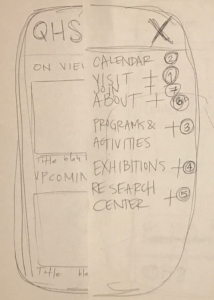 QHS X
ON VIEW
CALENDAR 2
VISIT + 1
JOIN 7
ABOUT + 6
PROGRAMS & + 3
ACTIVITIES
EXHIBITIONS + 4
RESEARCH
CENTER + 5
title
UPCOMIN
Title